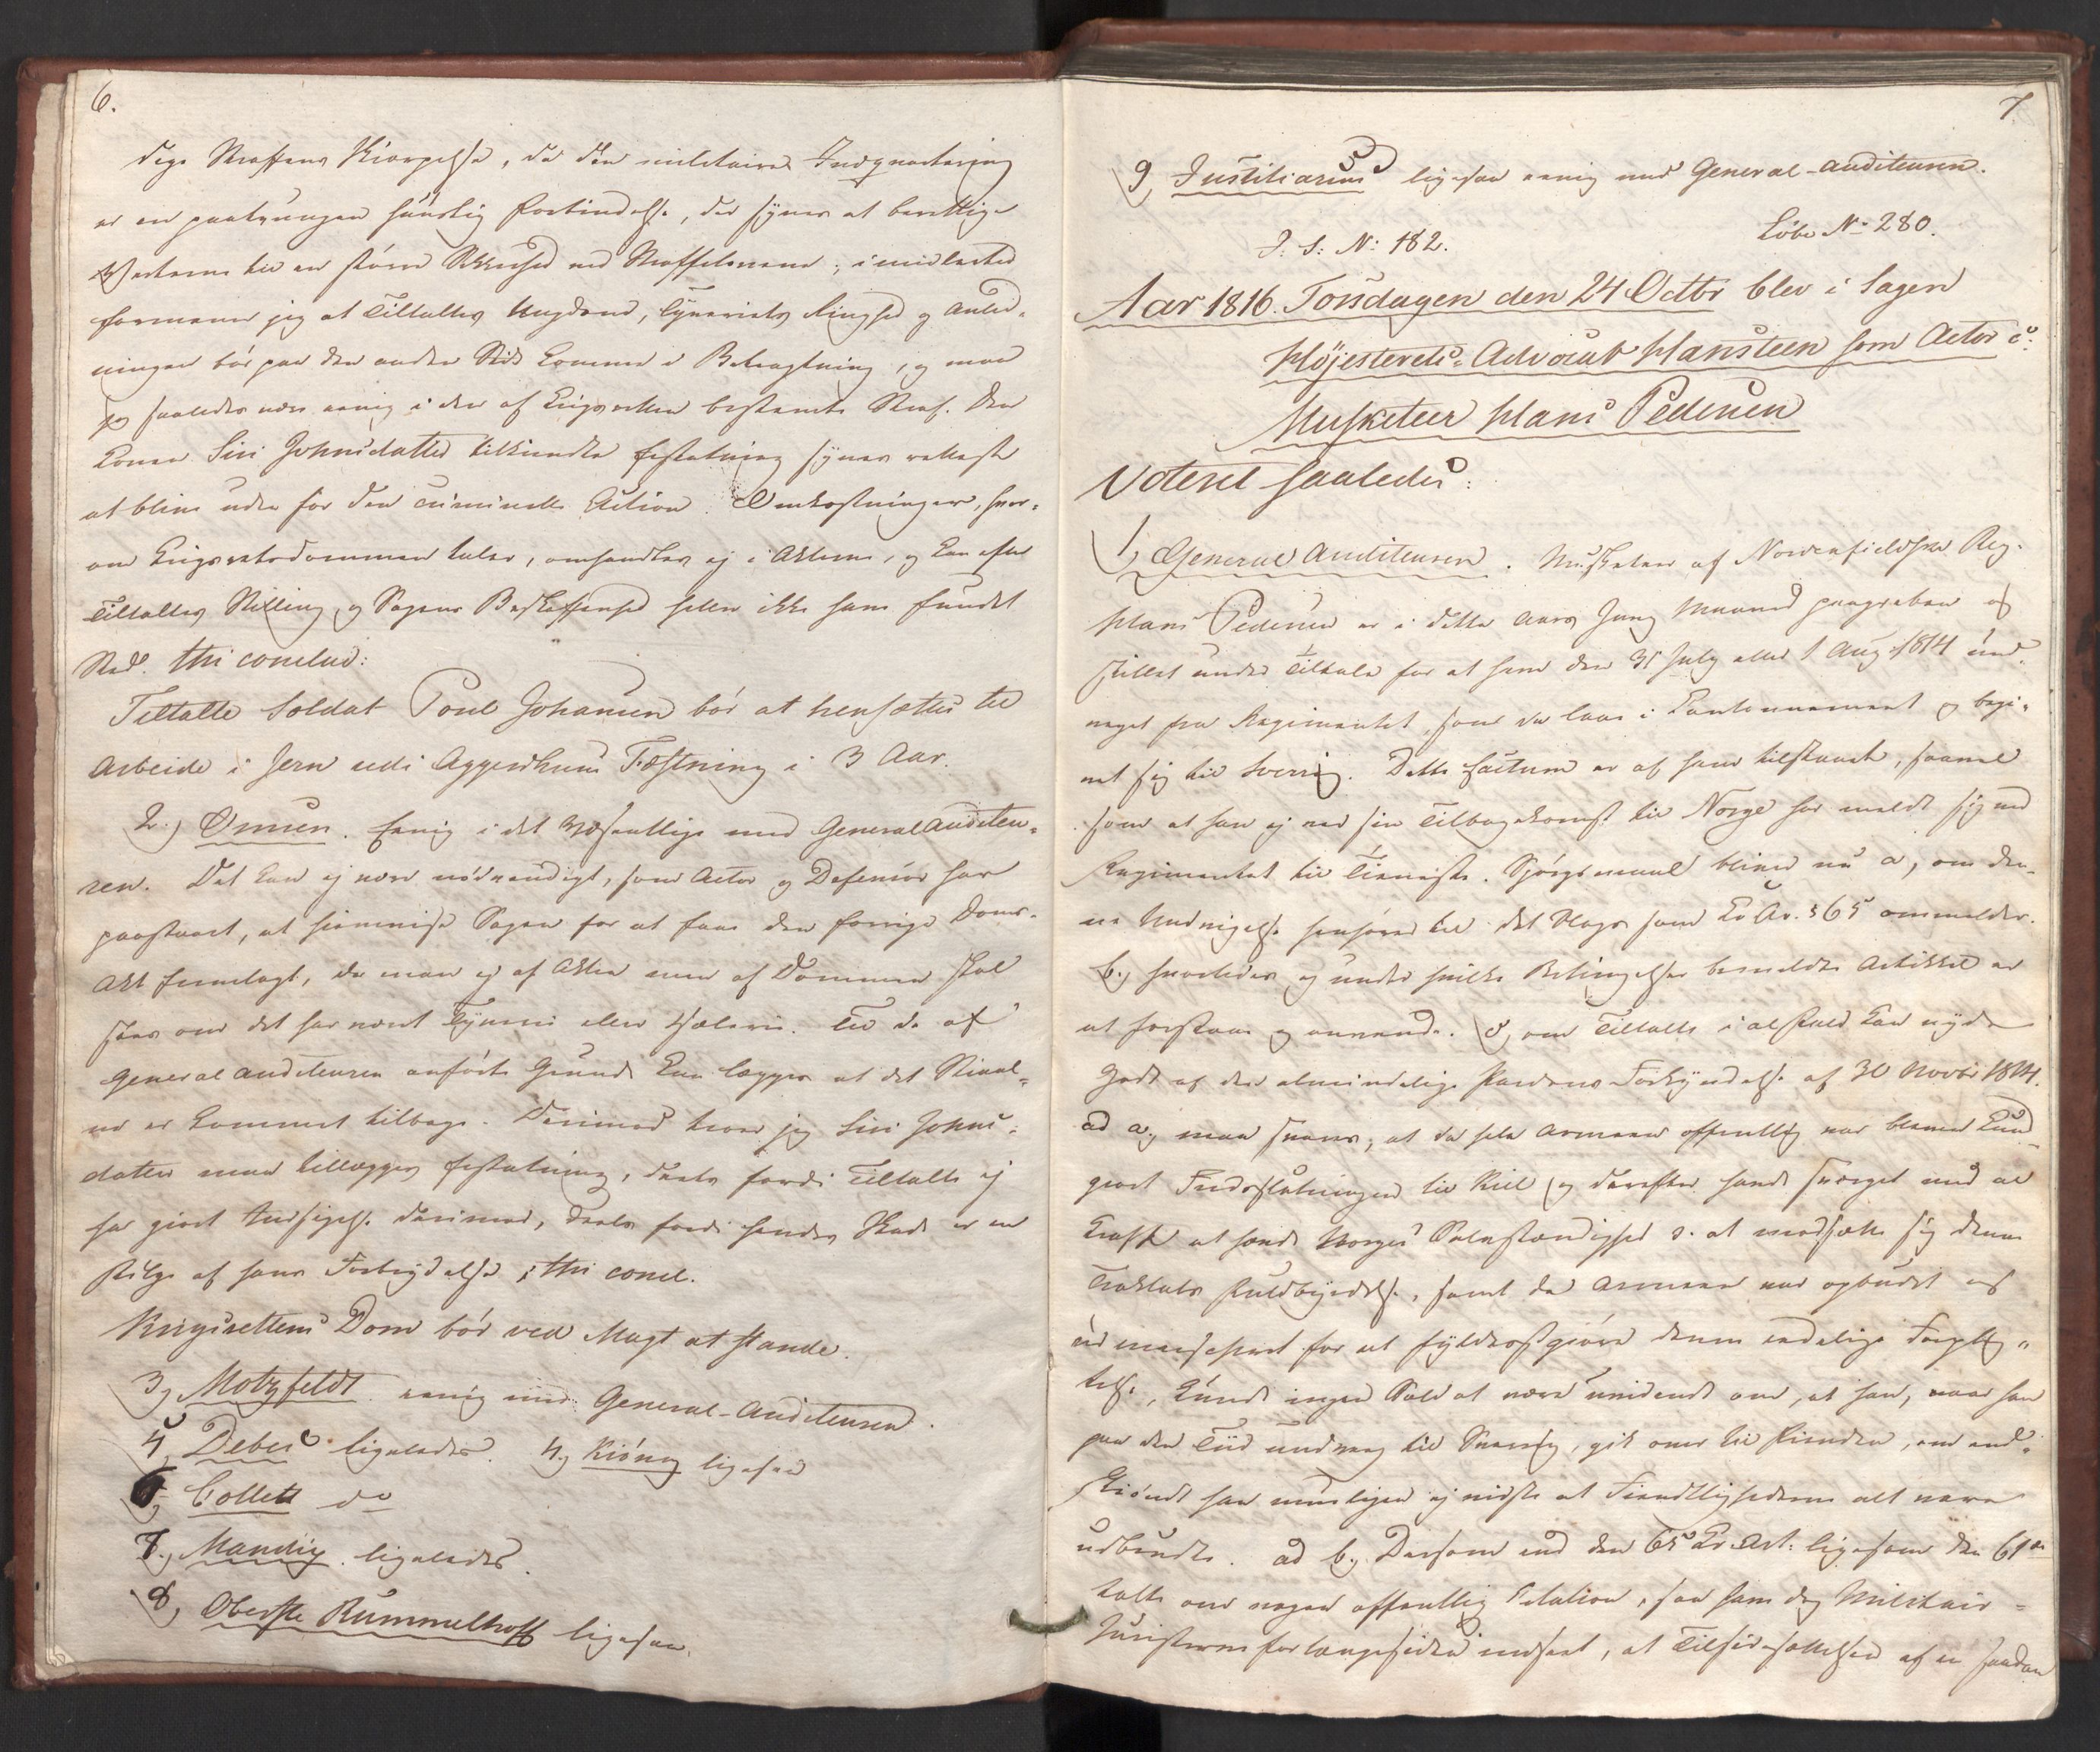 6.
dige Straffens Skiærpelse, da den militaire Indqvartering
er en paatvungen huuslig Forbindelse, der synes at berettige
Værterne til en større Sikkerhed ved Straffelovene; imidlertid
formener jeg at Tiltaltes Ungdom, Tyveriets Ringhed og Anled-
ningen bør paa den anden Side komme i Betragtning, og maa
jeg saaledes være eenig i den af Krigsretten bestemte Straf. Den
Konen Siri Johnsdatter tilkiendte Erstatning synes rettest
at blive uden for den criminelle Action. Omkostninger, hvor-
om Krigsretsdommen taler, omhandles ej i Akterne, og kan efter
Tiltaltes Stilling og Sagens Beskaffenhed heller ikke have fundet
Sted. thi conclud:
Tiltalte Soldat Poul Johansen bør at hensættes til
Arbeide i Jern udi Aggershuus Fæstning i 3 Aar.
2.) Omsen. Eenig i det Væsentlige med General Auditeu-
ren. Det kan ej være nødvendigt, som Actor og Defensor har
paastaaet, at hiemvise Sagen for at faae den forrige Doms-
Akt fremlagt, da man ej af Akten men af Dommen skal
see om det har været Tyverie eller Hæleri. Til de af
General Auditeuren anførte Grunde kan lægges at det Stiaal-
ne er kommet tilbage. Derimod troer jeg Siri Johns-
datter maa tillægges Erstatning, deels fordi Tiltalte ej
har giort Indsigelse derimod, deels fordi hendes Skade er en
Følge af hans Forbrydelse; thi concl.
Krigsrettens Dom bør ved Magt at stande.
3, Motzfeldt eenig med General-Auditeuren.
5, Debes ligeledes. 4, Kiønig ligesaa
6, Collett do
7., Manthey. ligeledes.
8, Oberste Rummelhoff ligesaa.
7
9, Justitiarius ligesaa eenig med General-Auditeuren.
J: S: N: 182. Løbe No 280.
Aar 1816. Torsdagen den 24 Octbr blev i Sagen
Højesterets-Advocat Hansteen som Actor c:
Musketeer Hans Pedersen
Voteret saaledes:
1, General Auditeuren. Musketeer af Nordenfieldske Reg.
Hans Pedersen er i dette Aars Juny Maaned paagreben og
stillet under Tiltale for at have den 31 July eller 1 Aug 1814 und-
veget fra Regimentet, som da laae i Cantonnement og begi-
vet sig til Sverrig. Dette Factum er af ham tilstaaet, saavel
som at han ej ved sin Tilbagekomst til Norge har meldt sig ved
Regimentet til Tieneste. Spørgsmaal bliver nu a, om den-
ne Undvigelse henhører til det Slags som Kr Ar. § 65 ommelder.
b., hvorledes og under hvilke Betingelser bemeldte Artikkel er
at forstaae og anvende. c, om Tiltalte i al Fald kan nyde
Godt af den almindelige Pardons Forkyndelse af 30 Novbr 1814.
ad a, maa svares, at da hele Armeen offentlig var bleven kund-
giort Fredsslutningen til Kiel og derefter havde svoret med al
Kraft at hævde Norges Selvstændighed o: at modsætte sig denne
Traktats Fuldbyrdelse, samt da Armeen var opbudet og
udmarscheret for at fyldestgiøre denne eedelige Forplig-
telse, kunde ingen Soldat være uvidende om, at han, naar han
paa den Tiid undveeg til Sverrig, gik over til Fienden, om end-
skiøndt han mueligen ej vidste at Fiendtlighederne alt vare
udbrudte. ad b., Dersom end den 65 Kr. Art. ligesom den 61de
talte om nogen offentlig Citation, saa have dog Militair-
Juristerne for længesiden indseet, at Tilsidesættelsen af en saadan